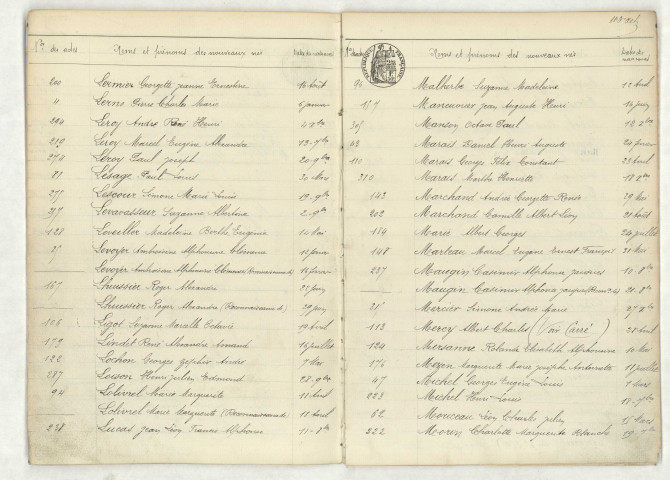 Nos des actes Noms et prénoms des nouveaux nés
200 Lormier Georgette Jeanne Ernestine 16 août
11 Lerno Pierre Charles Marie 6 janvier
294 Leroy André René Henri
219 Leroy Marcel Eugène Alexandre 13 - 7bre
274 Leroy Paul Joseph 20 - 9bre
81 Lesage Paul Louis 30 Mars
277 Lescour Simon Marie Louis 19 - 9bre
257 Levavasseur Suzanne Albertine 2 - 9bre
128 Leveiller Madeleine Berthe Eugénie 14 Mai
27 Levoyer Ambroisine Alphonsine Clémence
Levoyer Ambroisine Alphonsine Clémence (Reconnaissance)
167 Lhuissier Roger Alexandre
Lhuissier Roger Alexandre (Reconnaissance)
106 Ligot Suzanne Marcelle Octavie 19 Avril
179 Lindet René Alexandre Armand 16 juillet
122 Lochon Georges André 7 Mai
287 Loison Henri Julien Edmond 28 - 9bre
94 Lolivrel Marie Marguerite 11 Avril
Lolivrel Marie Marguerite (Reconnaissance) 11 Avril
238 Lucas Jean Léon François Alphonse 11 - 8bre
Noms et prénoms des nouveaux nés
RÉPUBLIQUE FRANÇAISE
96 Malherbe Suzanne Madeleine 12 Avril
157 Manouvrier Jean Auguste Henri 16 juin
305 Manson Octave Paul
43 Marais Daniel Henri Auguste
110 Marais Georges Félix Constant 23 Avril
310 Marais Marthe Henriette
143 Marchand Andrée Georgette Renée 29 Mai
202 Marchand Camille Albert Léon 21 août
114 Marie Albert Georges
148 Marteau Marcel Eugène Ernest François 31 Mai
237 Maugin Casimir Alphonse Jacques 10 - 8bre
Maugin Casimir Alphonse Jacques 21 - 8bre
Mercier Simone Andrée Marie
113 Mercy Albert Charles (Voir Carré) 28 Avril
124 Mersanne Rolande Elisabeth Alphonsine 10 Mai
176 Meyer Marguerite Marie Josèphe Antoinette 11 juillet
47 Michel Georges Eugène Louis 1 Mars
223 Michel Henri Louis
62 Monceau Léon Charles Julien 15 Mars
222 Morin Charlotte Marguerite Blanche